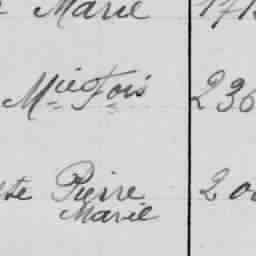 Marie 171
Mie Fois 236
ste Pierre 200
Marie